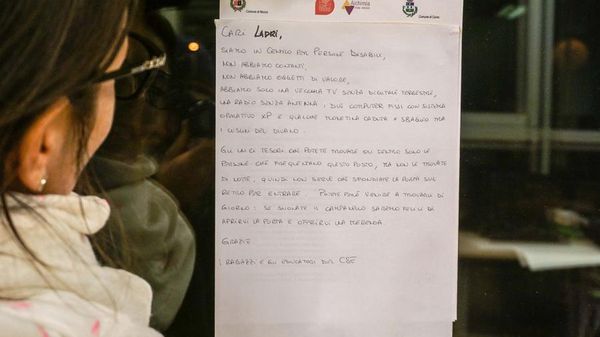 Comune di Monza
Alchimia
Comune di Cologno
CARI LADRI,
SIAMO UN CENTRO PER PERSONE DISABILI,
NON ABBIAMO CONTANTI,
NON ABBIAMO OGGETTI DI VALORE,
ABBIAMO SOLO UNA VECCHIA TV SENZA DIGITALE TERRESTRE,
UNA RADIO SENZA ANTENNA, DUE COMPUTER FISSI CON SISTEMA
OPERATIVO XP E QUALCHE MONETINA CADUTA X SBAGLIO TRA
I CUSCINI DEL DIVANO.
GLI UNICI TESORI CHE POTETE TROVARE QUI DENTRO SONO LE
PERSONE CHE FREQUENTANO QUESTO POSTO, MA NON LE TROVATE
DI NOTTE, QUINDI NON SERVE CHE SFONDIATE LA PORTA SUL
RETRO PER ENTRARE. POTETE PERÒ VENIRE A TROVARCI DI
GIORNO: SE SUONATE IL CAMPANELLO SAREMO FELICI DI
APRIRVI LA PORTA E OFFRIRVI UNA MERENDA.
GRAZIE
I RAGAZZI E GLI EDUCATORI DEL CSE